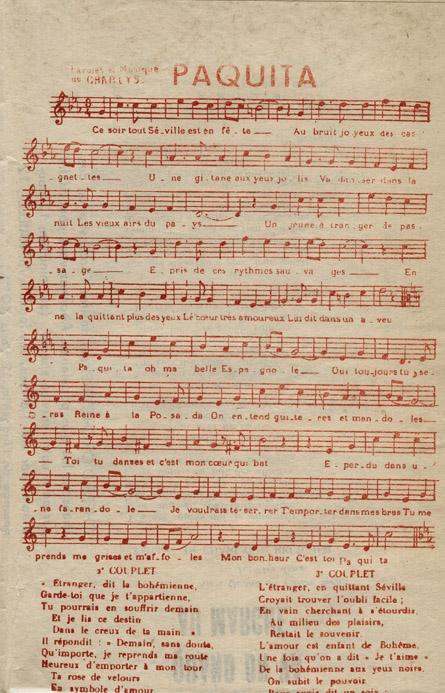 Paroles et Musique
de CHARLYS
PAQUITA
Ce soir tout Sé_ville est en fê_te___ Au bruit jo_yeux des cas_
_gnet_tes___ U_ne gi_tane aux yeux jo_lis Va dan_ser dans la
nuit Les vieux airs du pa_ys___ Un jeune é_tran_ger de pas_
_sa_ge___ E_pris de ces rythmes sau_va_ges___ En
ne la quittant plus des yeux Le cœur très amoureux Lui dit dans un a_veu
Pa_qui_ta oh ma belle Es_pa_gno_le___ Oui tou_jours tu se_
_ras Reine à la Po_sa_da On en_tend gui_ta_res et man_do_les___
___Toi tu danses et c'est mon cœur qui bat E_per_du dans u_
_ne fa_ran_do_le___ Je voudrais te ser_rer T'emporter dans mes bras Tu me
prends me grises et m'af_fo_les Mon bonheur C'est toi Pa qui ta
2e COUPLET
« Etranger, dit la bohémienne,
Garde-toi que je t'appartienne,
Tu pourrais en souffrir demain
Et je lis ce destin
Dans le creux de ta main. »
Il répondit : « Demain, sans doute,
Qu'importe, je reprends ma route
Heureux d'emporter à mon tour
Ta rose de velours
En symbole d'amour
3e COUPLET
L'étranger, en quittant Séville
Croyait trouver l'oubli facile ;
En vain cherchant à s'étourdir,
Au milieu des plaisirs,
Restait le souvenir.
L'amour est enfant de Bohême,
Une fois qu'on a dit « Je t'aime »
De la bohémienne aux yeux noirs,
On subit le pouvoir